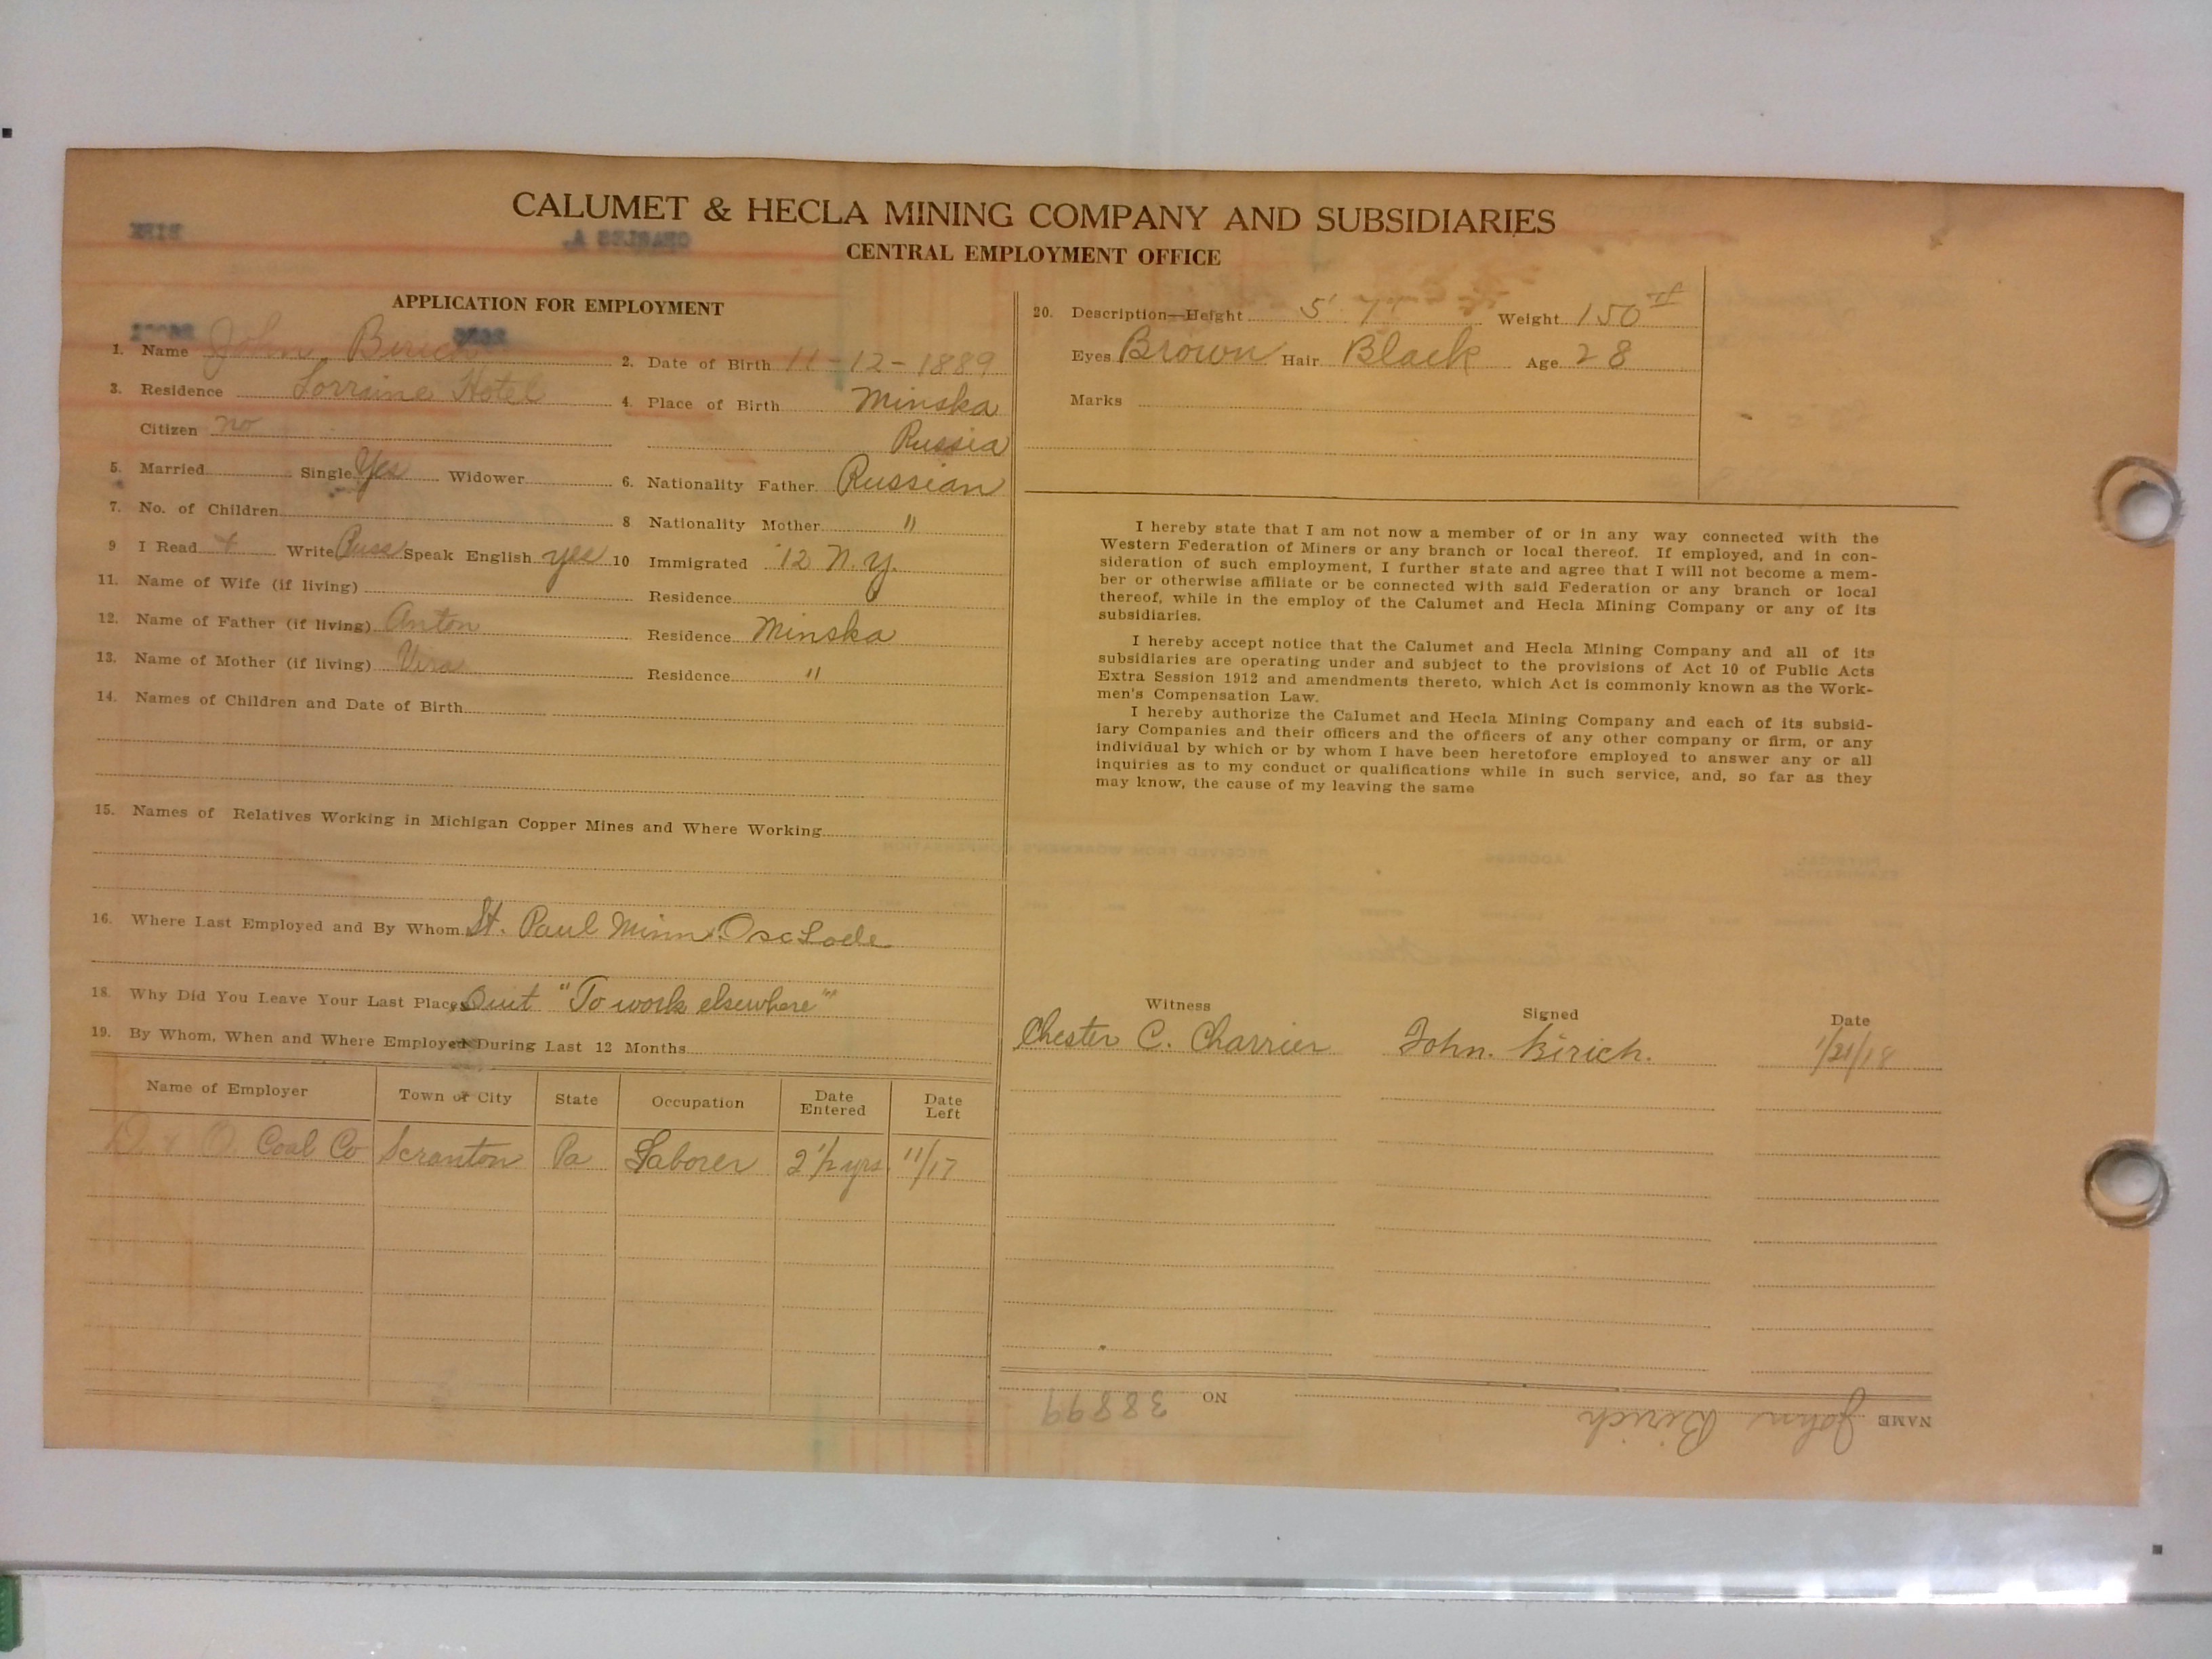 CALUMET & HECLA MINING COMPANY AND SUBSIDIARIES
CENTRAL EMPLOYMENT OFFICE
APPLICATION FOR EMPLOYMENT
1. Name John Birich 2. Date of Birth 11-12-1889
3. Residence Lorraine Hotel 4. Place of Birth Minska
Citizen no Russia
5. Married Single Yes Widower 6. Nationality Father Russian
7. No. of Children 8 Nationality Mother "
9 I Read + Write Russ Speak English yes 10 Immigrated '12 N.Y.
11. Name of Wife (if living) Residence
12. Name of Father (if living) Anton Residence Minska
13. Name of Mother (if living) Vera Residence "
14. Names of Children and Date of Birth
15. Names of Relatives Working in Michigan Copper Mines and Where Working
16. Where Last Employed and By Whom St. Paul Minn. Osc Lode
18. Why Did You Leave Your Last Place Quit "To work elsewhere"
19. By Whom, When and Where Employed During Last 12 Months
Name of Employer Town or City State Occupation Date Entered Date Left
Coal Co Scranton Pa Laborer 2 1/2 yrs 11/17
20. Description—Height 5' 7" Weight 150 #
Eyes Brown Hair Black Age 28
Marks
I hereby state that I am not now a member of or in any way connected with the
Western Federation of Miners or any branch or local thereof. If employed, and in con-
sideration of such employment, I further state and agree that I will not become a mem-
ber or otherwise affiliate or be connected with said Federation or any branch or local
thereof, while in the employ of the Calumet and Hecla Mining Company or any of its
subsidiaries.
I hereby accept notice that the Calumet and Hecla Mining Company and all of its
subsidiaries are operating under and subject to the provisions of Act 10 of Public Acts
Extra Session 1912 and amendments thereto, which Act is commonly known as the Work-
men's Compensation Law.
I hereby authorize the Calumet and Hecla Mining Company and each of its subsid-
iary Companies and their officers and the officers of any other company or firm, or any
individual by which or by whom I have been heretofore employed to answer any or all
inquiries as to my conduct or qualifications while in such service, and, so far as they
may know, the cause of my leaving the same
Witness Signed Date
Chester C. Charrier John. Birich. 1/21/18
NAME John Birich NO 38899